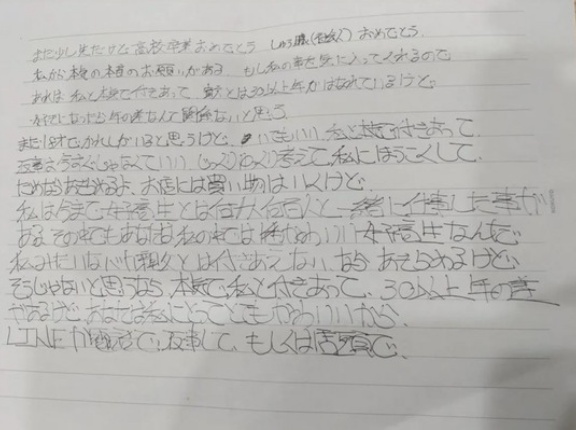 まだ少し先だけど高校卒業おめでとう しゅう職(社会人)おめでとう
私から本気の本音のお願いがある もし私の事を気に入ってくれるので
あれば 私と本気で付きあって 貴方とは30以上年がはなれているけど
好きになったら年の差なんて関係ないと思う
まだ18才でかれしがいると思うけど、いてもいい 私と本気で付きあって
返事は今すぐじゃなくていい じっくりじっくり考えて私にほうこくして
だめならあきらめるよ お店には買い物はいくけど
私は今まで女子高生とは何十人何百人と一緒に仕事した事が
ある その中でもあなたは私の中では一番かわいい女子高生なんだ
私みたいなとは付きあえない、なら あきらめるけど
そうじゃないと思うなら 本気で私と付きあって、30以上年の差
があるけど あなたは私にとってとてもかわいいから
LINEか電話で、返事して、もしくは店頭で、